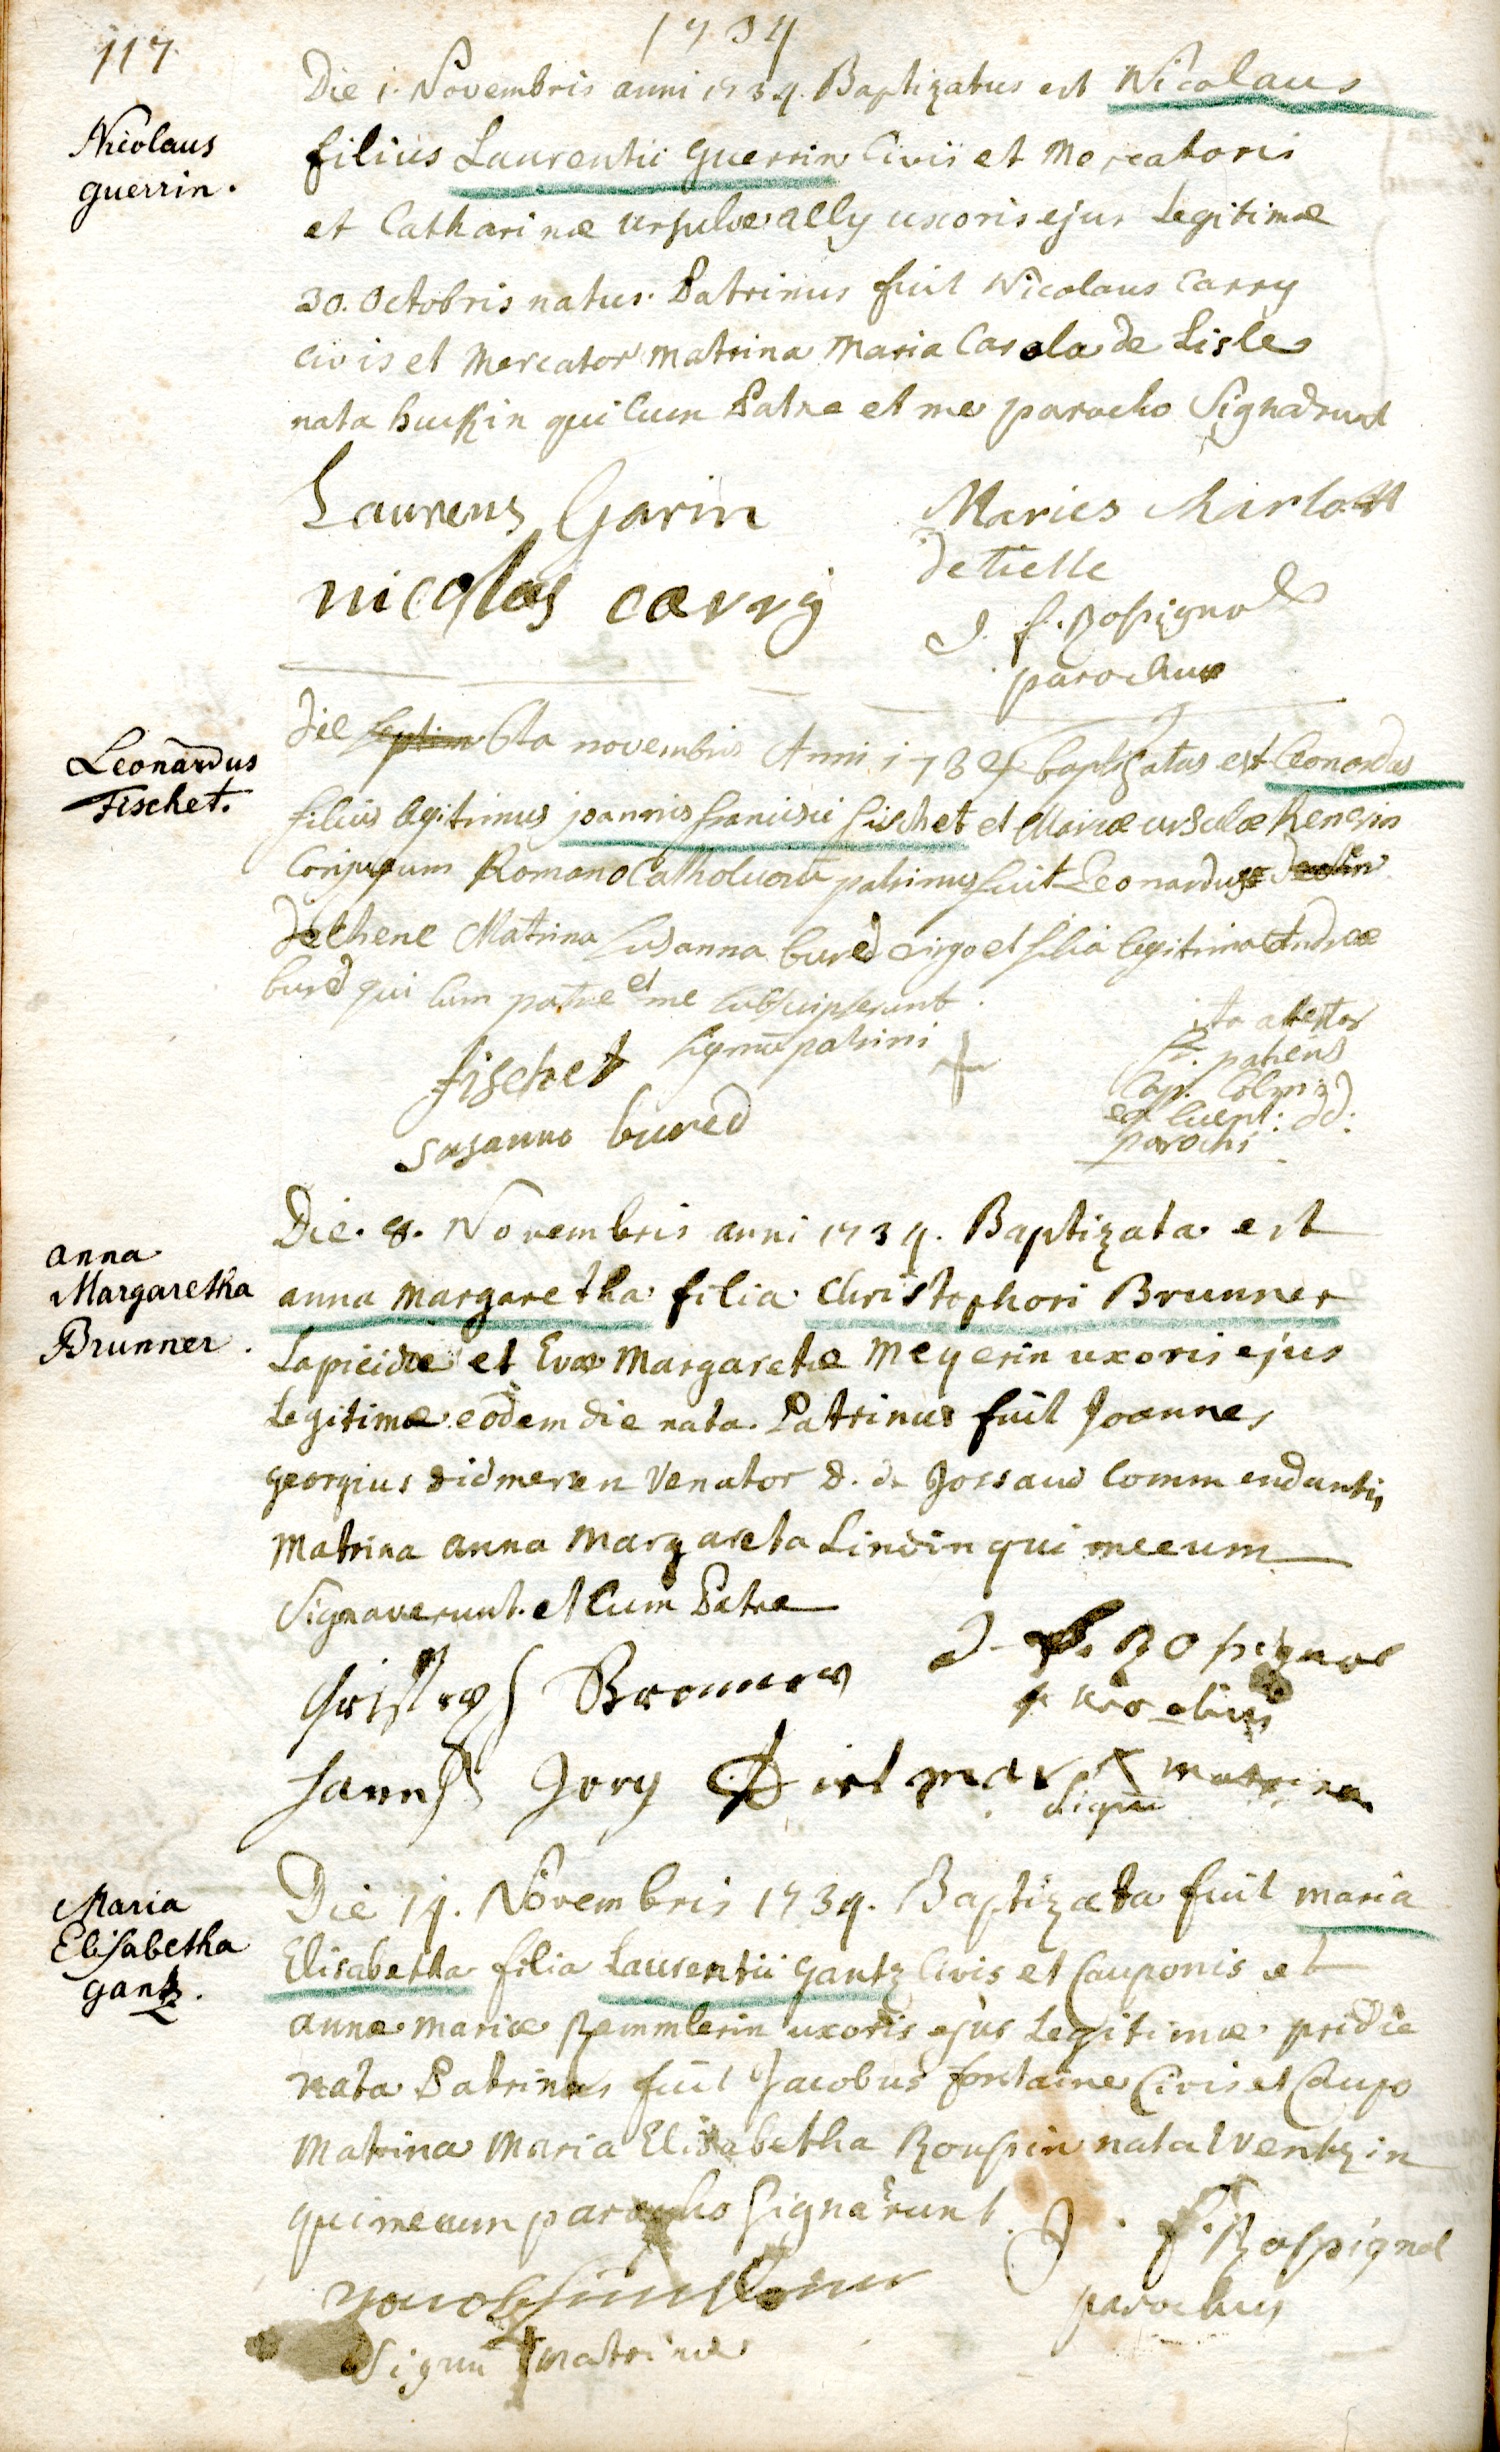 117
1734
Nicolaus
guerrin.
Die 1. Novembris anni 1734. Baptizatus est Nicolaus
filius Laurentii guerrin Civis et Mercatoris
et Catharinæ ursulæ ally uxoris ejus Legitimæ
30. Octobris natus. Patrinus fuit Nicolaus Carry
civis et Mercator Matrina Maria Carola de Lisle
nata qui Cum Patre et me parocho Signarunt
Laurens Garin
Maries Charlott
nicolas carrÿ
J. f. Rosignol
parochus
Leonardus
Fischet.
Die 6ta novembris Anni 1734 baptizatus est Leonardus
filius legitimus joannis francisci fischet et Mariæ ursulæ
Conjugum Romano Catholicorū patrinus fuit Leonardus
dechene Matrina Susanna bured virgo et filia legitima Andreæ
bured qui cum patre et me subscripserunt.
fischet signū patrini +
susanna bured
ita attestor
parochi
anna
Margaretha
Brunner.
Die. 8. Novembris anni 1734. Baptizata est
anna Margaretha filia Christophori Brunner
Lapicidæ et Evæ Margaretæ Meyerin uxoris ejus
Legitimæ eodem die nata. Patrinus fuit Joannes
georgius didmeren Venator D. de Jossaud Commendantis
Matrina anna Margareta Lindin qui mecum
Signaverunt. et Cum Patre
J. f. Rosignol
parochus
Jorg
+ matrina
Signū
Maria
Elisabetha
gantz.
Die 14. Novembris 1734. Baptizata fuit Maria
Elisabetha filia Laurentii gantz Civis et Cauponis et
annæ Mariæ Remmlerin uxoris ejus Legitimæ pridie
nata Patrinus fuit Jacobus fontaine Civis et Caupo
Matrina Maria Elisabetha nata Wentzin
qui mecum parocho Signarunt.
J. f. Rosignol
parochus
Signū + matrinæ